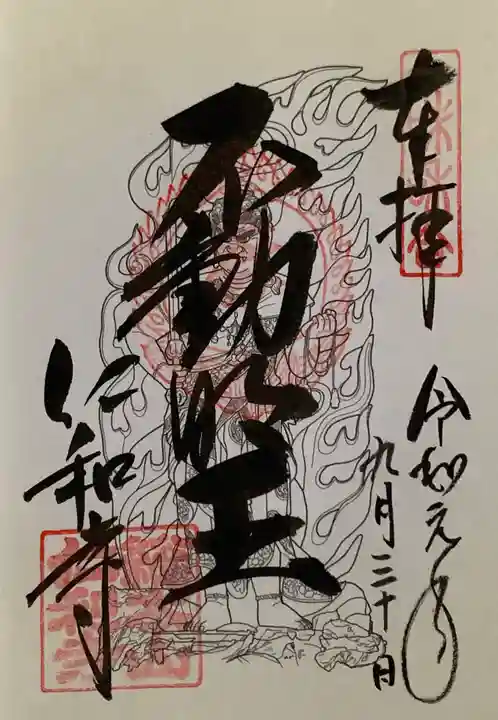 奉拝
令和元年
九月三十日
不動明王
仁和寺